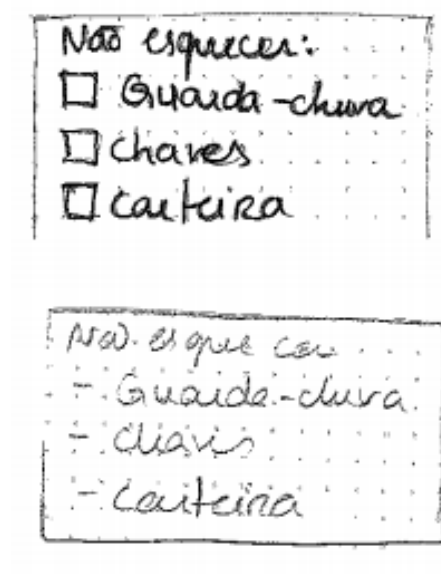 Não esquecer:
☐ Guarda-chuva
☐ Chaves
☐ Carteira
Não esquecer
- Guarda-chuva
- Chaves
- Carteira